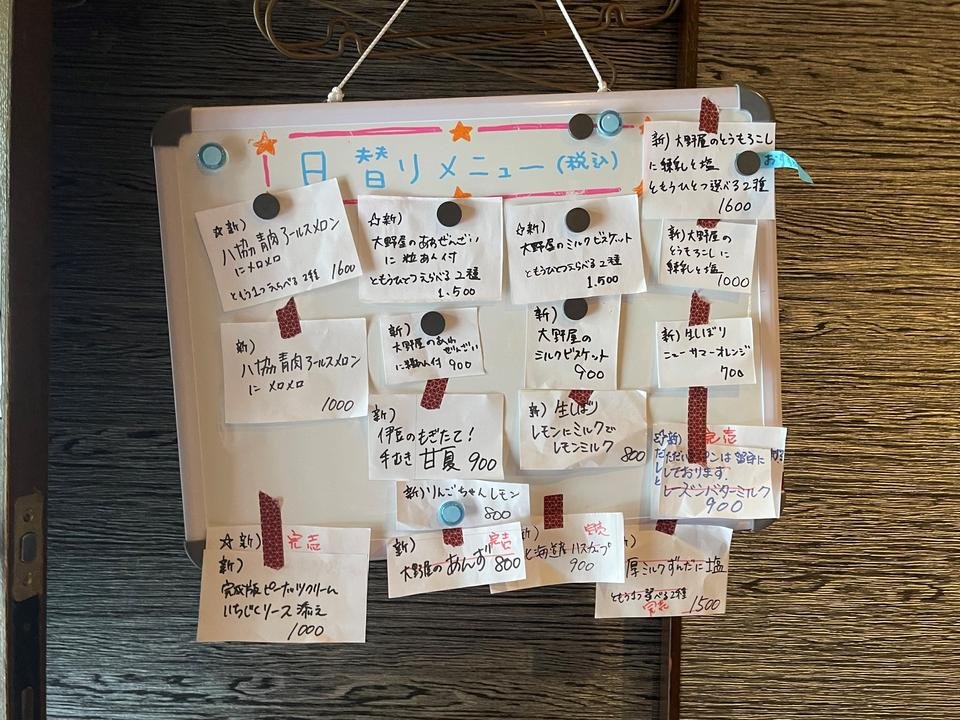 日替りメニュー(税込)
新)大野屋のとうもろこし
に練乳と塩
ともうひとつ選べる2種
1600
☆新)
八協青肉アールスメロン
にメロメロ
ともう1つえらべる2種 1600
☆新)
大野屋のあわぜんざい
に粒あん付
ともうひとつえらべる2種
1.500
☆新)
大野屋のミルクビスケット
ともうひとつえらべる2種
1.500
新)大野屋の
とうもろこしに
練乳と塩
1000
新)
八協青肉アールスメロン
にメロメロ
1000
新)
大野屋のあわ
ぜんざい
に粒あん付 900
新)
大野屋の
ミルクビスケット
900
新)生しぼり
ニューサマーオレンジ
700
新)
伊豆のもぎたて!
手むき 甘夏 900
新)生しぼり
レモンにミルクで
レモンミルク
800
☆新) 完売
しております。
レーズンバターミルク
900
新)りんごちゃんレモン
800
☆新) 完売
新)
完成版ピーナッツクリーム
いちじくソース添え
1000
新) 完売
大野屋のあんず 800
完売
北海道産ハスカップ
900
厚ミルクずんだに塩
ともう1つ選べる2種
完売 1500